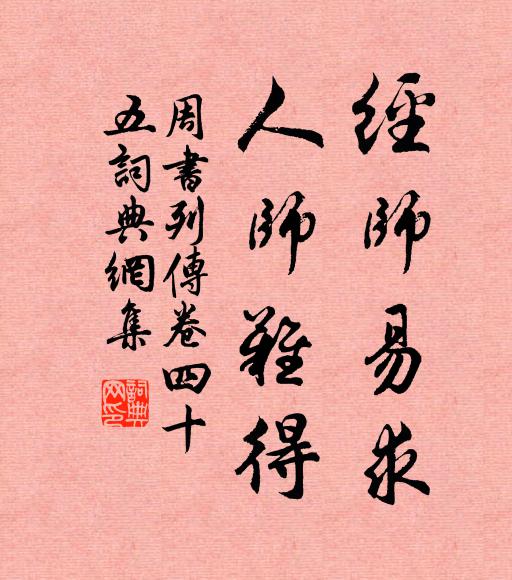 經師易求
人師難得
周書列傳卷四十
五詞典網集
詞典
网印